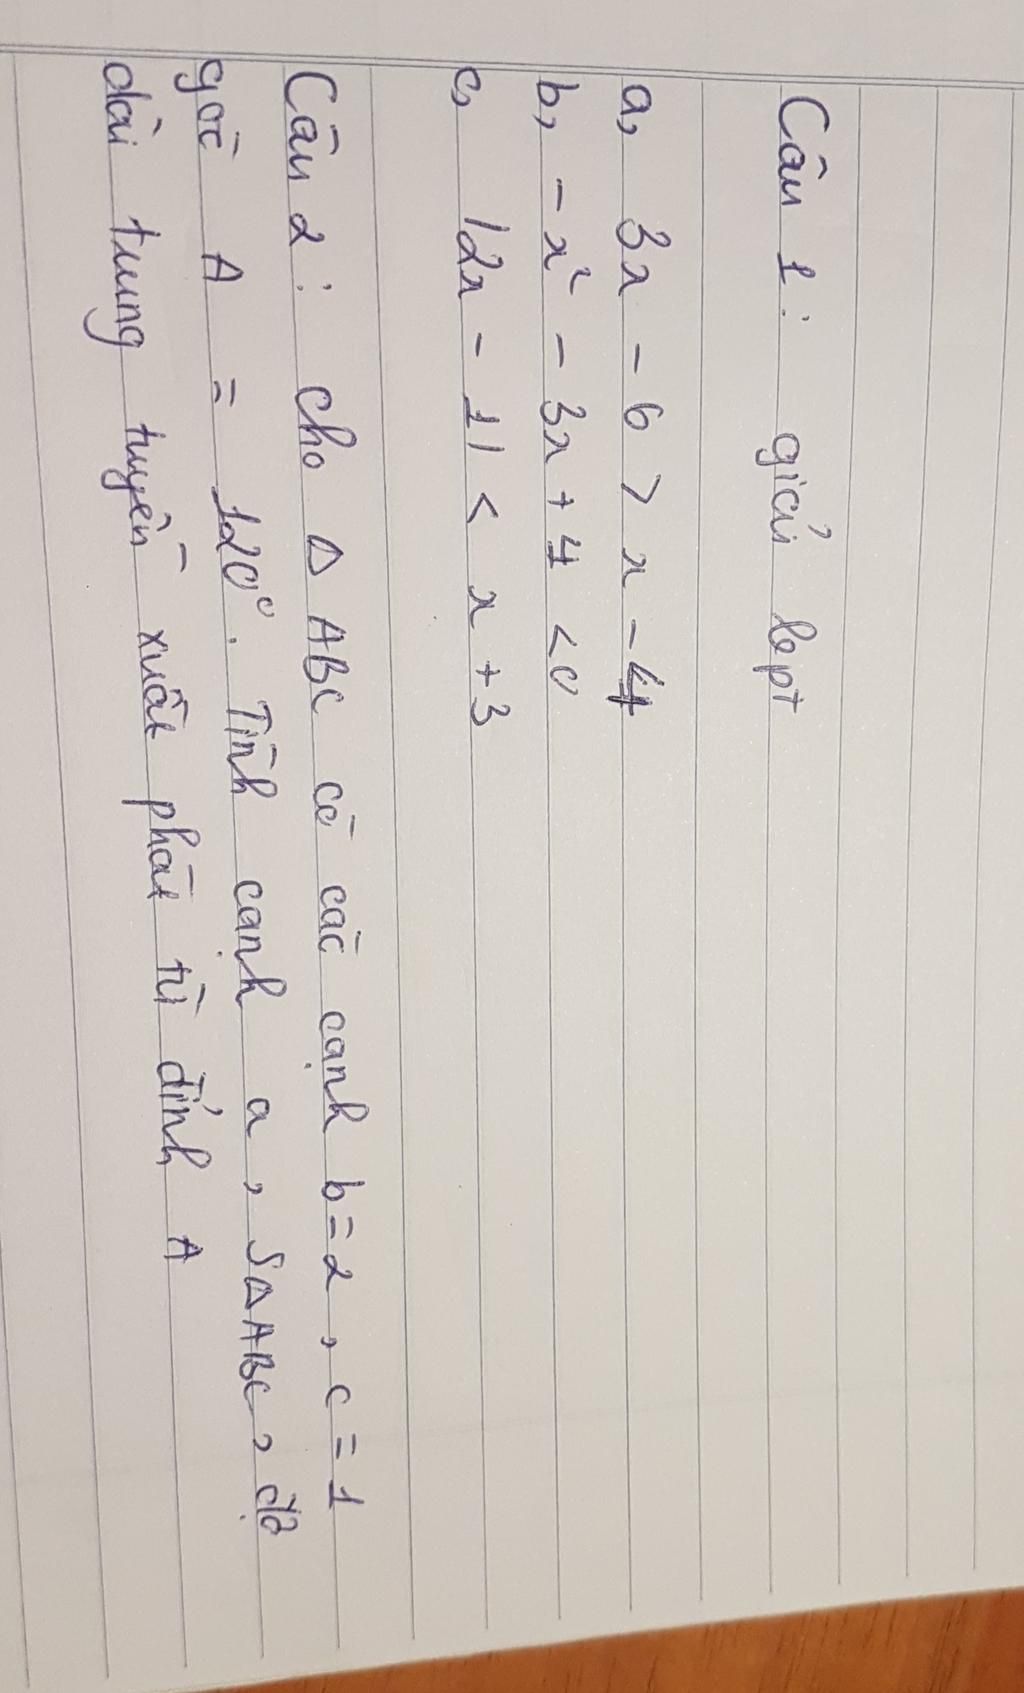 Câu 1: giải bpt
a, 3x - 6 > x - 4
b, -x² - 3x + 4 < 0
c, |2x - 1| < x + 3
Câu 2: cho △ ABC có các cạnh b=2, c=1
góc A = 120°. Tính cạnh a, S△ABC, độ
dài trung tuyến xuất phát từ đỉnh A